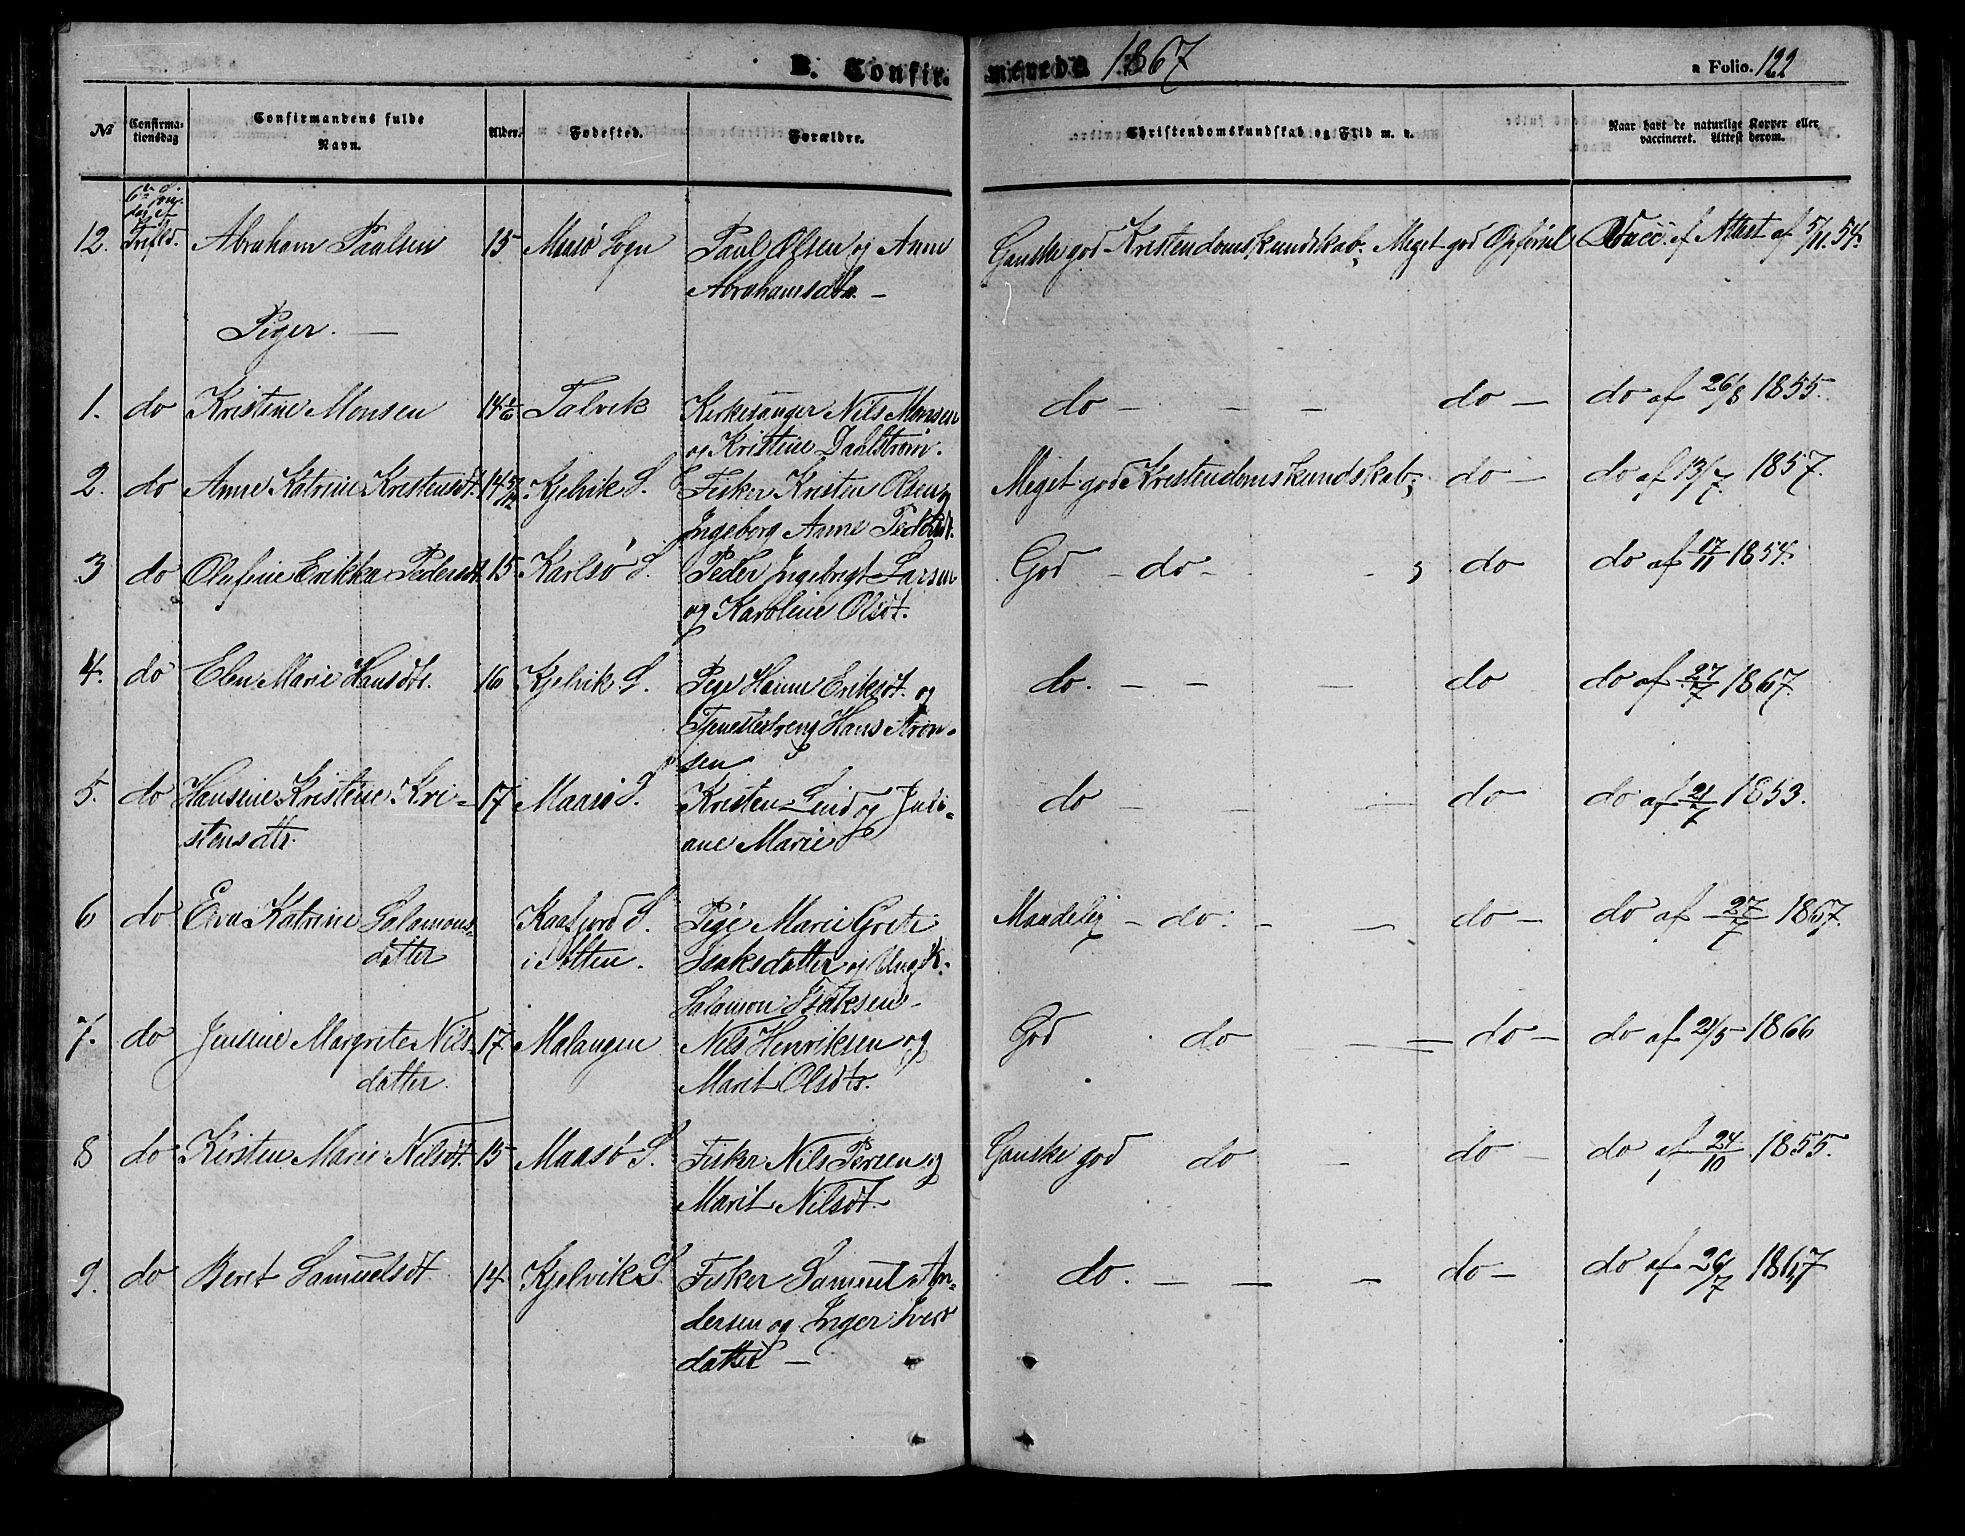 B. Confir- merede 1867
a Folio. 122
№ Confirma-tionsdag Confirmandens fulde Navn. Alder. Fødested. Forældre. Christendomskundskab og Flid m. v. Naar havt de naturlige Kopper eller vaccineret. Attest derom.
12. Abraham Paulsen 15 Maasø Sogn Paul Olsen og Anne Ganske god Kristendomskundskab; Meget god Opførsel Vacc. ef Attest af 5/11 54.
Abrahamsdtr. —
Piger. —
1. do Kristine Monsen 14 1/6 Talvik Kirkesanger Nils Monsen do — — — do — do af 26/8 1855.
og Kristine Daalstrøm.
2. do Anne Katrine Kristensdt. 14 5/12 Kjelvik S. Fisker Kristen Olsen og Meget god Kristendomskundskab; do — do af 13/7 1857.
Ingeborg Anne
3 do Olufine Erikka Pedersdt. 15 Karlsø S. Peder Ingebrigt Larsen God — do — ; do do af 17/11 1854.
og Karoline Olsdt.
4. do Elen Marie Hansdtr. 16 Kjelvik S. Pige Hanna Eriksdt. og do. — — — do do af 27/7 1867.
Tjenestedreng Hans Aron-
sen
5. do Hansine Kristine Kri- 17 Maasø S. Kristen Lind og Juli- do — — — do do af 2/7 1853.
stensdtr. ane Marie
6 do Eva Katrine Salomons- Kaafjord S. Pige Marie Grete Maadelig — do. — — do — do af 27/7 1867.
datter i Alten. Isaksdatter og Ungk.
Salamon Isaksen —
7. do Jensine Margrite Nils- 17 Malangen Nils Henriksen og God do — — do — do af 2/5 1866
datter. Marit Olsdtr.
8 do Kirsten Marie Nilsdt. 15 Maasø S. Fisker Nils Persen og Ganske god do — do — do af 24/10 1855.
Marit Nilsdt.
9. do Beret Samuelsdt 14 Kjelvik S. Fisker Samuel An- do. — — — do — do af 26/7 1867
dersen og Inger
datter —